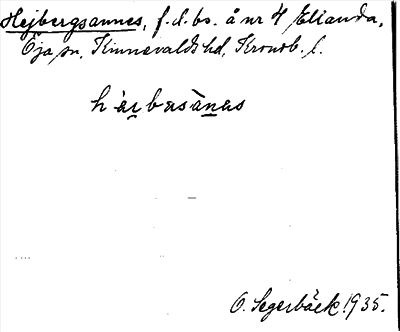 Hejbergsannes, f.d. bs. å nr 4 Ellanda,
Öja sn, Kinnevalds hd, Kronob. l.
O. Segerbäck. 1935.